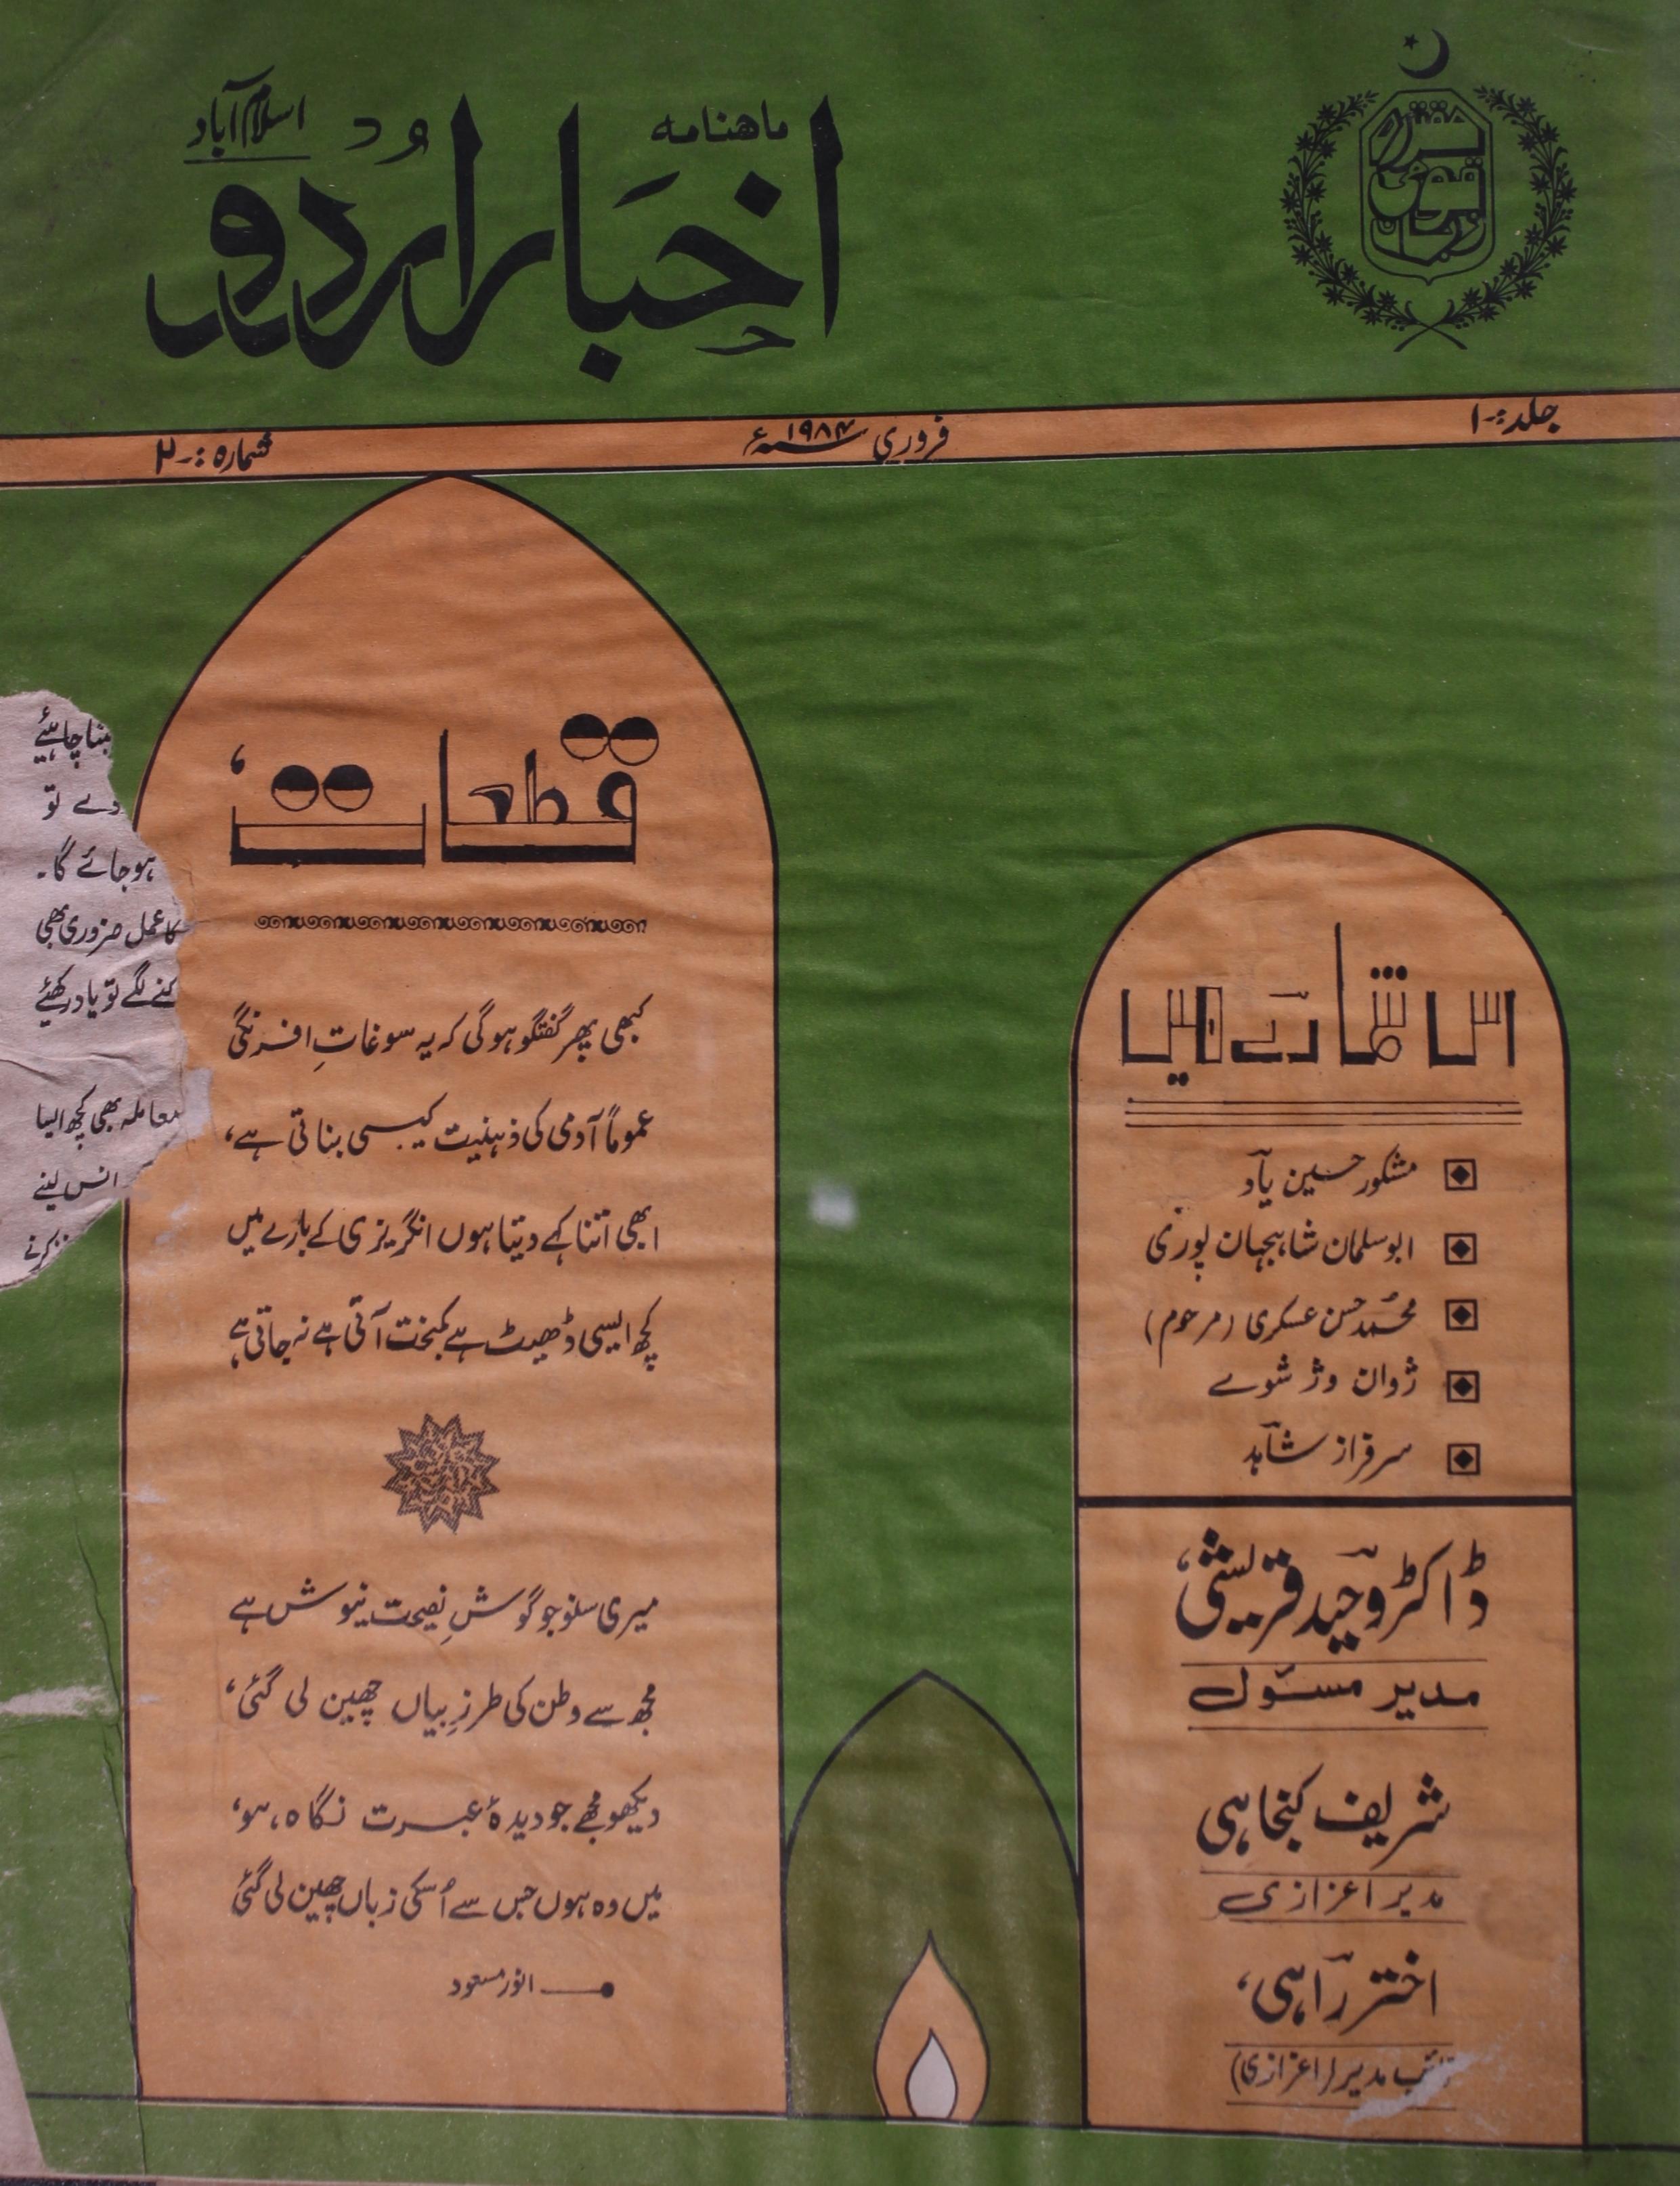 ماهنامہ
اخبار اردو
اُردو
اسلام آباد
مقتدرہ قومی زبان
جلد:- ۱
فروری ۱۹۸۴ء
شمارہ:- ۲
قطعات
کبھی پھر گفتگو ہوگی کہ یہ سوغاتِ افرنگی
عموماً آدمی کی ذہنیت کیسی بناتی ہے،
ابھی اتنا کہے دیتا ہوں انگریزی کے بارے میں
کچھ ایسی ڈھیٹ ہے کمبخت آتی ہے نہ جاتی ہے
میری سنو جو گوشِ نصیحت نیوش ہے
مجھ سے وطن کی طرزِ بیاں چھین لی گئی،
دیکھو مجھے جو دیدۂ عبرت نگاہ، ہو،
میں وہ ہوں جس سے اُسکی زباں چھین لی گئی
انور مسعود
اس شمارے میں
مشکور حسین یاد
ابوسلمان شاہجہان پوری
محمد حسن عسکری (مرحوم)
ژوان وژ شوے
سرفراز شاہد
ڈاکٹر وحید قریشی،
مدیر مسئول
شریف کنجاہی
مدیر اعزازی
اختر راہی،
نائب مدیر (اعزازی)
بننا چاہئیے
دے تو
ہو جائے گا۔
کا عمل ضروری بھی
کنے لگے تو یاد رکھئیے
معاملہ بھی کچھ ایسا
انس لینے
کرنے